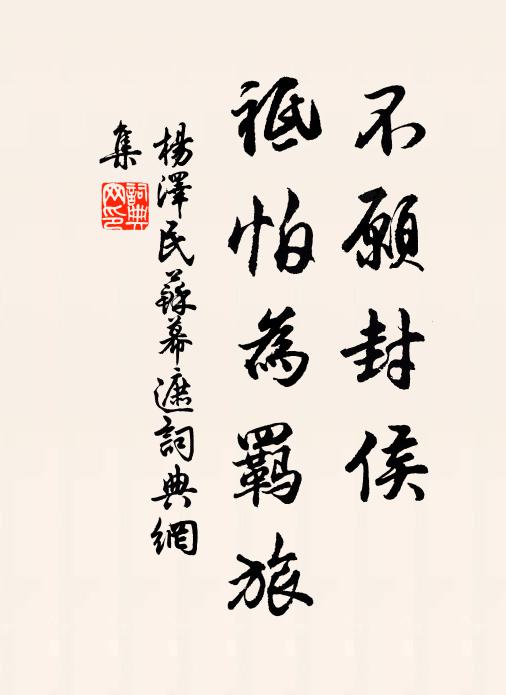 不願封侯
祗怕為羈旅
楊澤民蘇幕遮詞典網
集
詞典網印